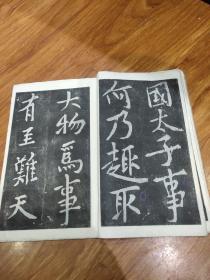 國太子事
何乃趣取
大物爲事
有至難天